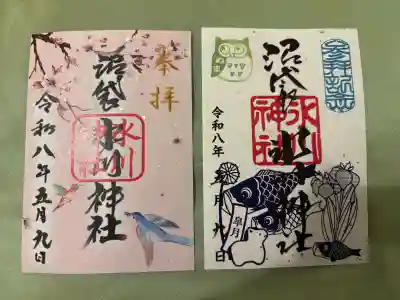 奉拝
沼袋
氷川神社
氷川
神社
令和八年五月九日
沼袋
氷川神社
氷川
神社
令和八年
五月九日
皐月